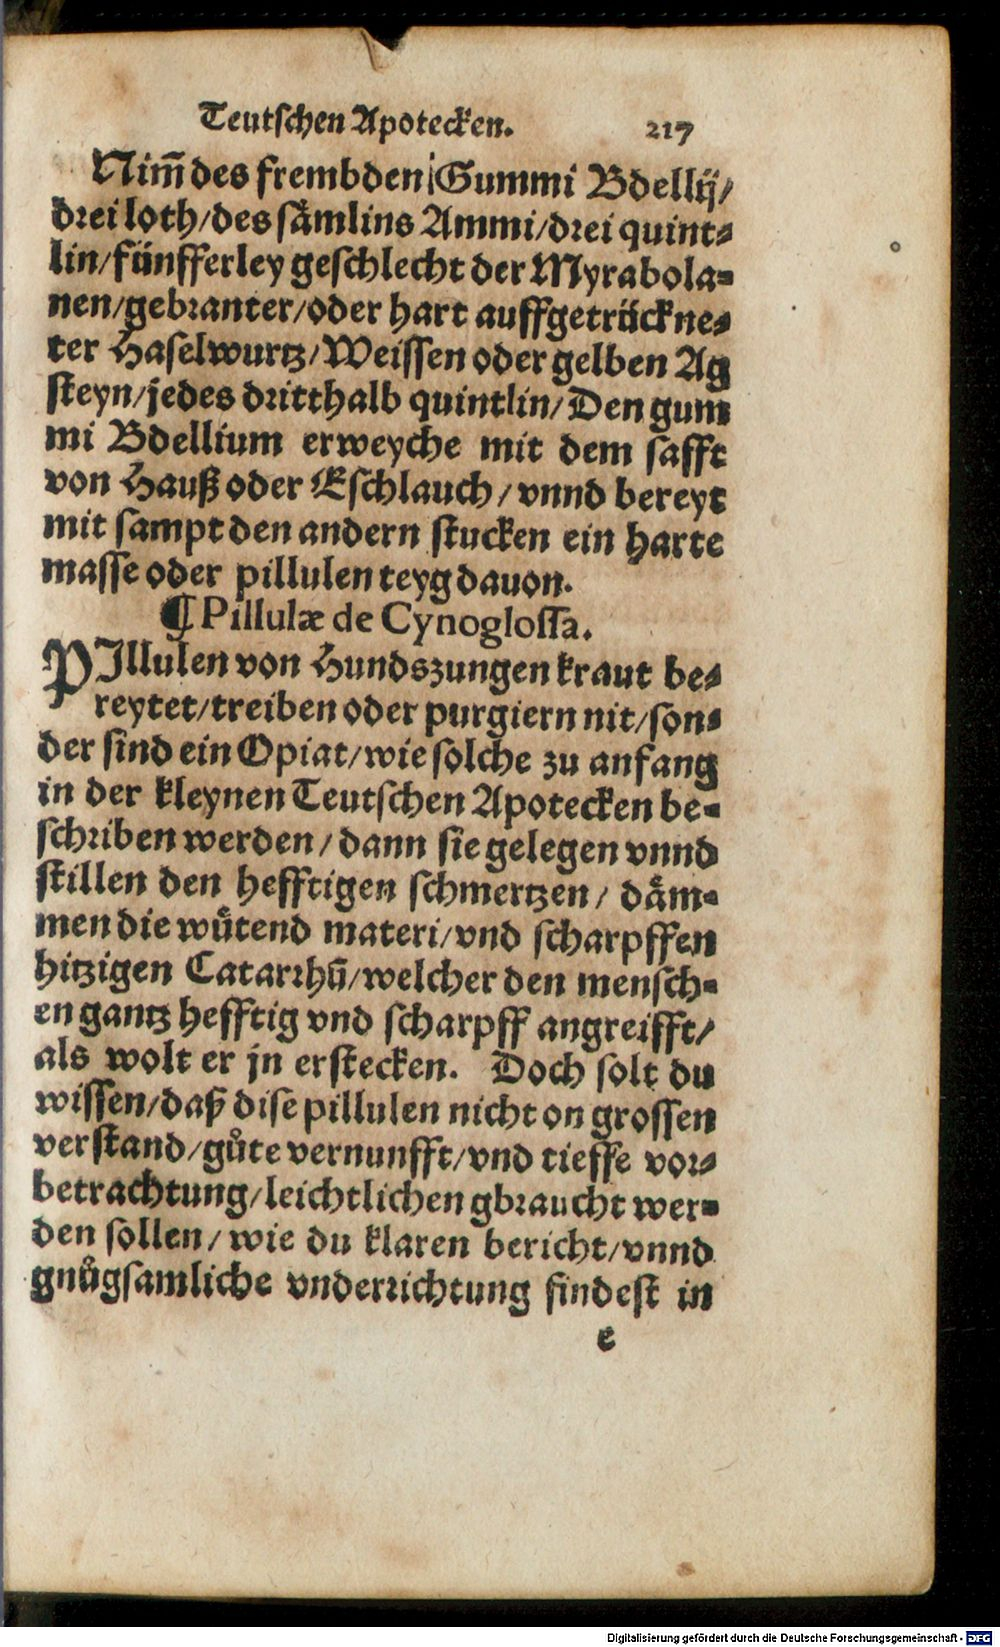 Teutschen Apotecken. 217
Nim̃ des frembden Gummi Bdellij/
drei loth/des sämlins Ammi/drei quint⸗
lin/fünfferley geschlecht der Myrabola⸗
nen/gebranter/oder hart auffgetröckne⸗
ter Haselwurtz/Weissen oder gelben Ag
steyn/jedes dritthalb quintlin/Den gum
mi Bdellium erweyche mit dem safft
von Hauß oder Eschlauch/vnnd bereyt
mit sampt den andern stucken ein harte
masse oder pillulen teyg dauon.
¶ Pillulæ de Cynoglossa.
PIllulen von Hundszungen kraut be⸗
reytet/treiben oder purgiern nit/son⸗
der sind ein Opiat/wie solche zu anfang
in der kleynen Teutschen Apotecken be⸗
schriben werden/dann sie gelegen vnnd
stillen den hefftigen schmertzen/däm⸗
men die wütend materi/vnd scharpffen
hitzigen Catarrhũ/welcher den mensch⸗
en gantz hefftig vnd scharpff angreifft/
als wolt er jn erstecken. Doch solt du
wissen/daß dise pillulen nicht on grossen
verstand/gůte vernunfft/vnd tieffe vor⸗
betrachtung/leichtlichen gbraucht wer⸗
den sollen/wie du klaren bericht/vnnd
gnůgsamliche vnderrichtung findest in
e
Digitalisierung gefördert durch die Deutsche Forschungsgemeinschaft - DFG